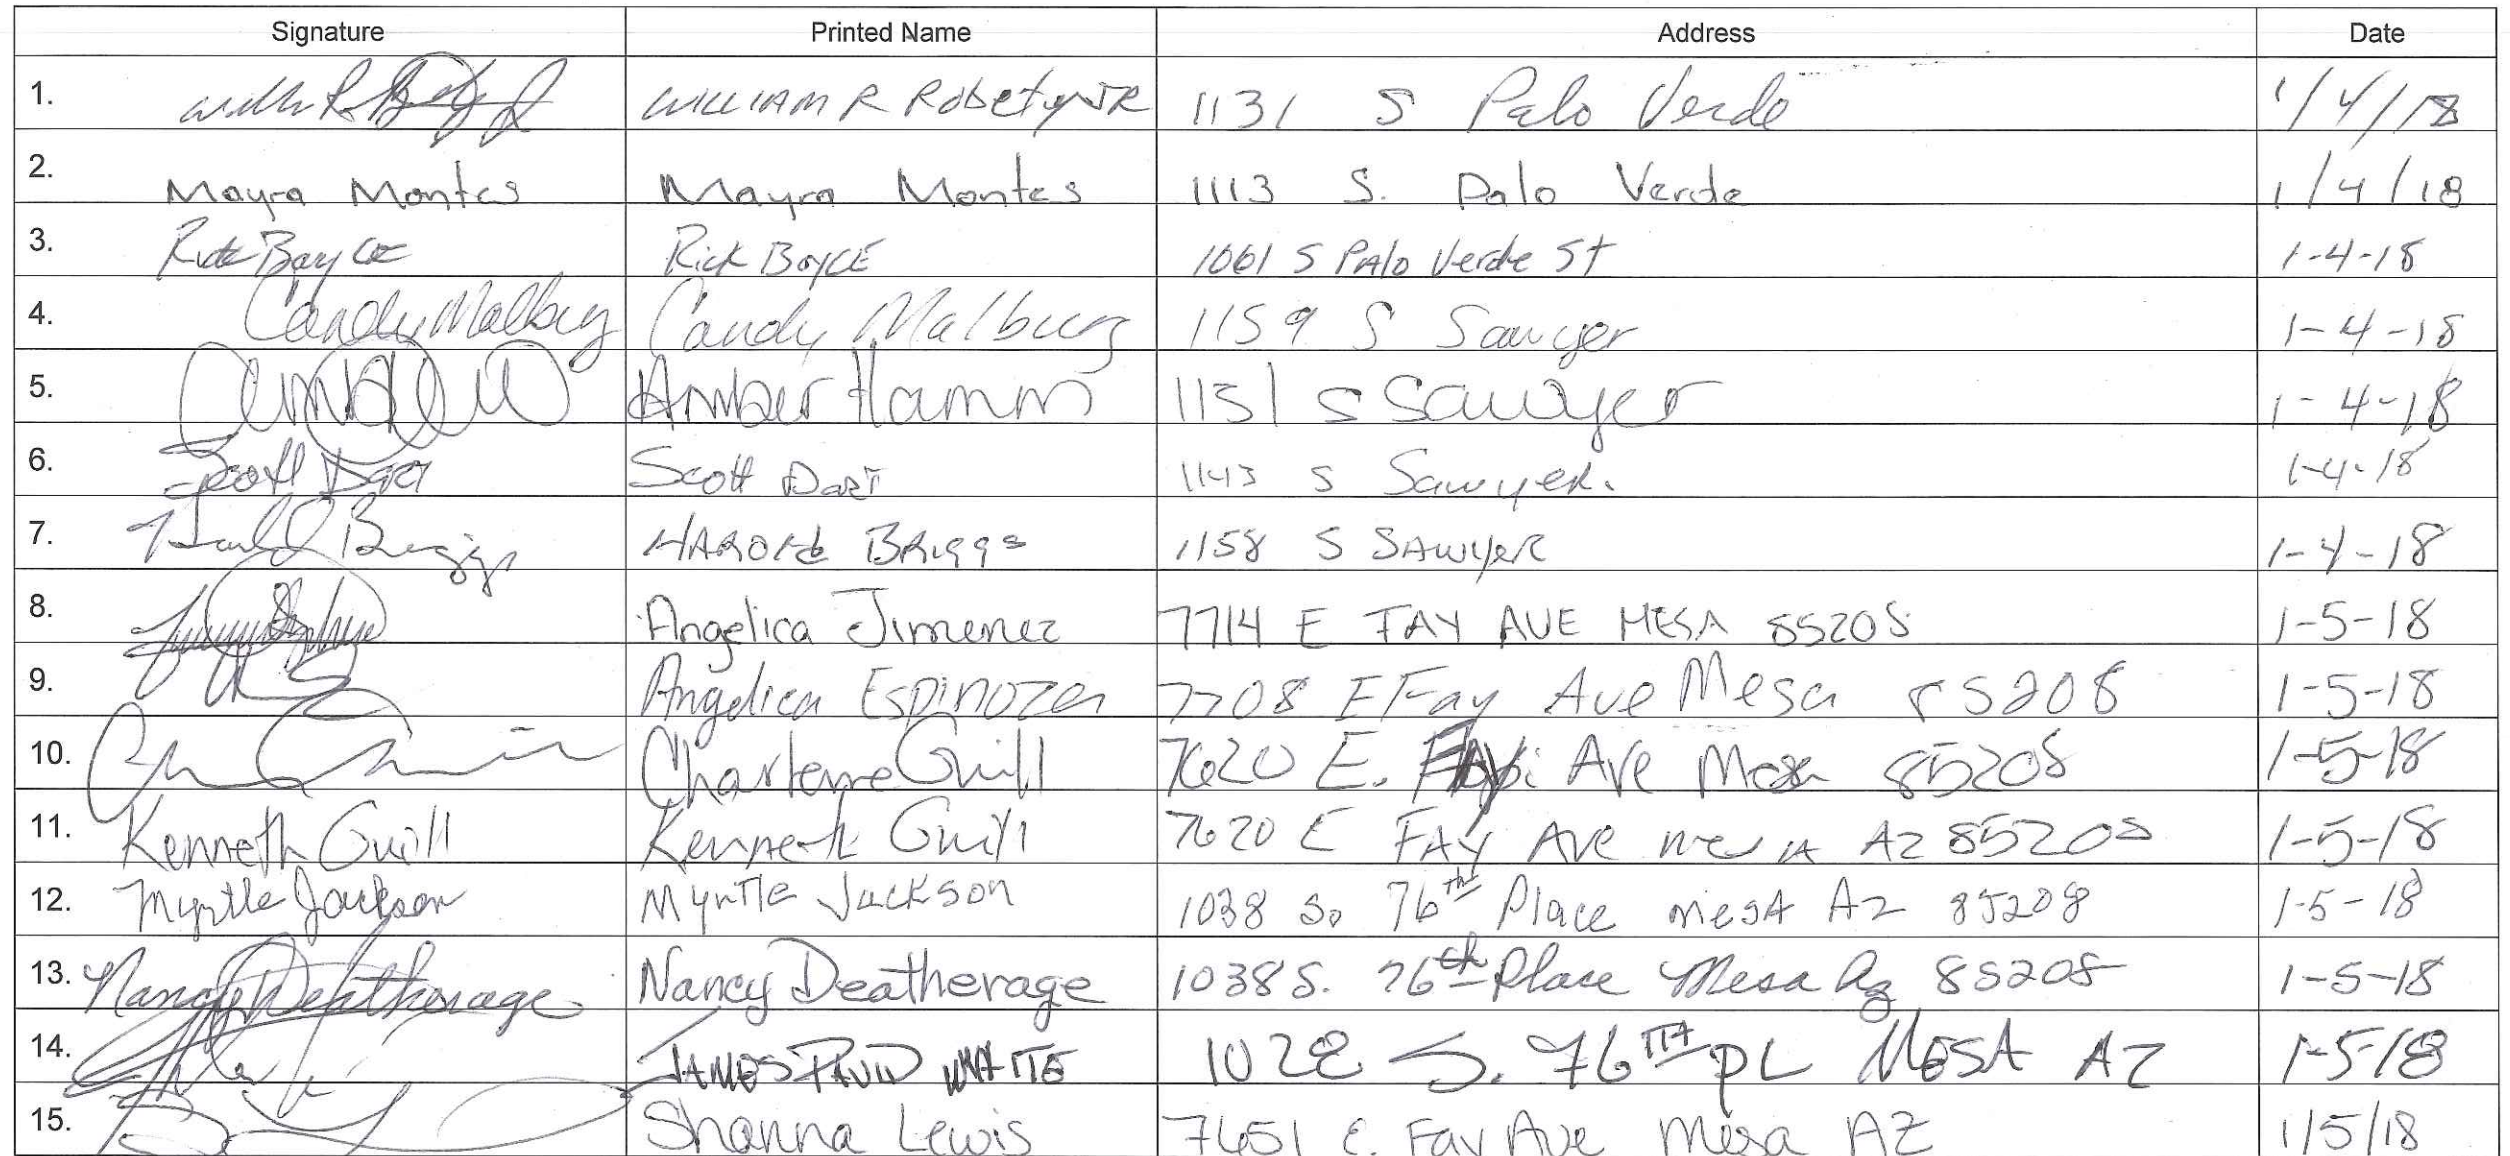 Signature Printed Name Address Date
1. WILLIAM R 1131 S Palo Verde 1/4/18
2. Mayra Montes Mayra Montes 1113 S. Palo Verde 1/4/18
3. Rick Boyce Rick BOYCE 1061 S PAlo Verde St 1-4-18
4. Candy Malburg Candy Malburg 1159 S Sawyer 1-4-18
5. Amber Hamm 1151 S Sawyer 1-4-18
6. Scott Dart Scott Dart 1143 S Sawyer. 1-4-18
7. Harold Briggs HAROLD BRIGGS 1158 S SAWYER 1-4-18
8. Angelica Jimenez 7714 E FAY AVE MESA 85208 1-5-18
9. Angelica Espinoza 7708 E Fay Ave Mesa 85208 1-5-18
10. Charlene Guill 7620 E. Ave Mesa 85208 1-5-18
11. Kenneth Guill Kenneth Guill 7620 E FAY Ave mesa AZ 85208 1-5-18
12. Myrtle Jackson Myrtle Jackson 1038 So 76th Place mesA Az 85208 1-5-18
13. Nancy Deatherage Nancy Deatherage 1038 S. 76th Place Mesa Az 85208 1-5-18
14. JAMES DAVID WHITE 1028 S. 76TH PL MESA AZ 1-5-18
15. Shanna Lewis 7651 E. Fay Ave Mesa AZ 1/5/18